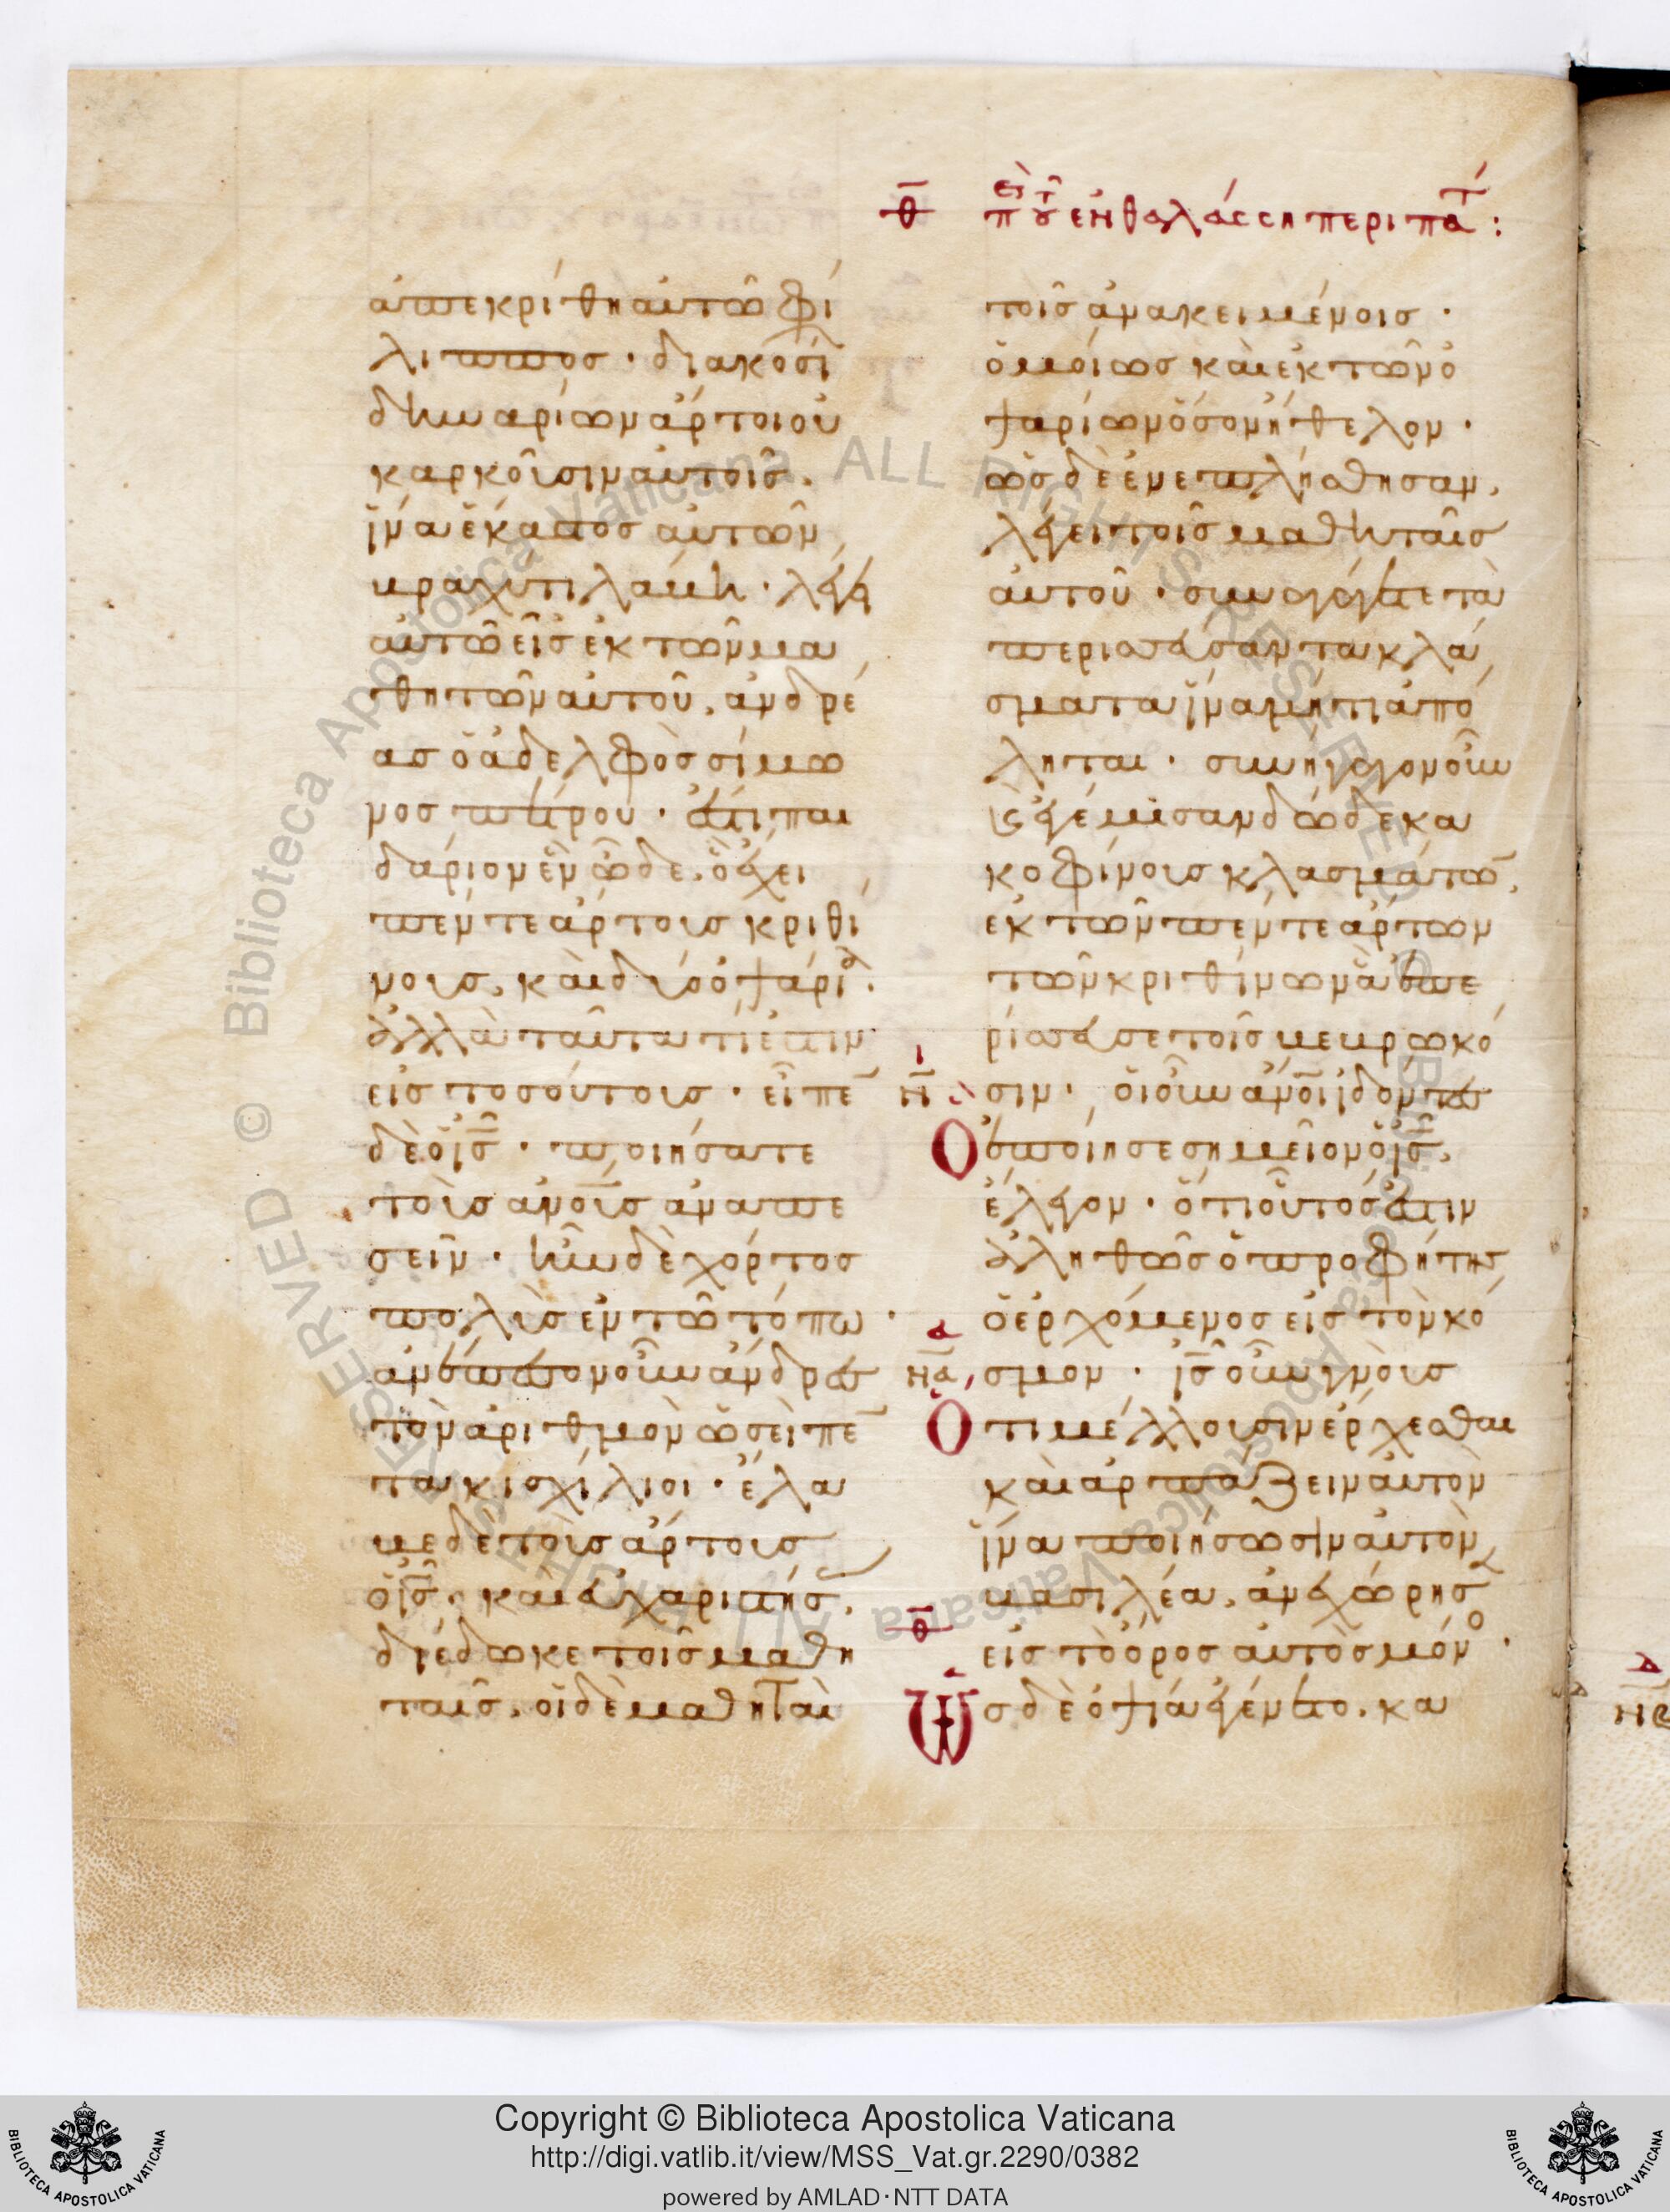 θ̅ εἰ τ̑
π̅ ȣ ἐν θαλάσση περιπατ́ :
ἀπεκρίθη αὐτῶ φί
λιππος · διακοσί
δηναρίων ἄρτοι οὐ
κ ἀρκοῦσιν αὐτοῖς.
ἵνα ἕκαστος αὐτῶν
βραχύ τι λάβη · λέγει
αὐτῶ εἷς ἐκ τῶν μα
θητῶν αὐτοῦ, ἀνδρέ
ας ὁ ἀδελφὸς σίμω
νος πέτρου · ἔστι παι
δάριον ἓν ὧδε. ὃ ἔχει
πέντε ἄρτους κριθί
νους, καὶ δύο ὀψάρια.
ἀλλὰ ταῦτα τί ἐστιν
εἰς τοσούτους · εἶπε̅
δὲ ὁ ι̅ς̅ · ποιήσατε
τοὺς ἀν̅ου̅ς ἀναπε
σεῖν · ἦν δὲ χόρτος
πολὺς ἐν τῶ τόπω ·
ἀνέπεσον οὖν ἄνδρες
τὸν ἀριθμὸν ὡσεὶ πε̅
τακισχίλιοι · ἔλα
βε δὲ τοὺς ἄρτους
ὁ ι̅ς̅. καὶ εὐχαριστήσ.
διέδωκε τοῖς μαθη
ταῖς. οἱ δὲ μαθηταὶ
τοῖς ἀνακειμένοις ·
ὁμοίως καὶ ἐκ τῶν ὀ
ψαρίων ὅσον ἤθελον ·
ὡς δὲ ἐνεπλήσθησαν,
λέγει τοῖς μαθηταῖς
αὐτοῦ · συναγάγετε τὰ
περισσεύσαντα κλά
σματα ἵνα μή τι ἀπό
ληται · συνήγαγον οὖν
καὶ ἐγέμισαν δώδεκα
κοφίνους κλασμάτω̅,
ἐκ τῶν πέντε ἄρτων
τῶν κριθίνων ἃ ἐπε
ρίσσευσε τοῖς βεβρωκό
ι
ν̅ σιν · οἱ οὖν ἄν̅οι ἰδόντες
Ὃ ἐποίησε σημεῖον ὁ ι̅ς̅.
ἔλεγον · ὅτι οὗτός ἐστιν
ἀληθῶς ὁ προφήτης
ὁ ἐρχόμενος εἰς τὸν κό
α
ν̅α̅ σμον · ι̅ς̅ οὖν γνοὺς
Ὅτι μέλλουσιν ἔρχεσθαι
καὶ ἁρπάζειν αὐτὸν
ἵνα ποιήσωσιν αὐτὸν
βασιλέα, ἀνεχώρησ
θ̅ εἰς τὸ ὄρος αὐτὸς μόνο ·
Ὡς δὲ ὀψία ἐγένετο. κα
δ
ν̅β
Copyright © Biblioteca Apostolica Vaticana
http://digi.vatlib.it/view/MSS_Vat.gr.2290/0382
powered by AMLAD · NTT DATA